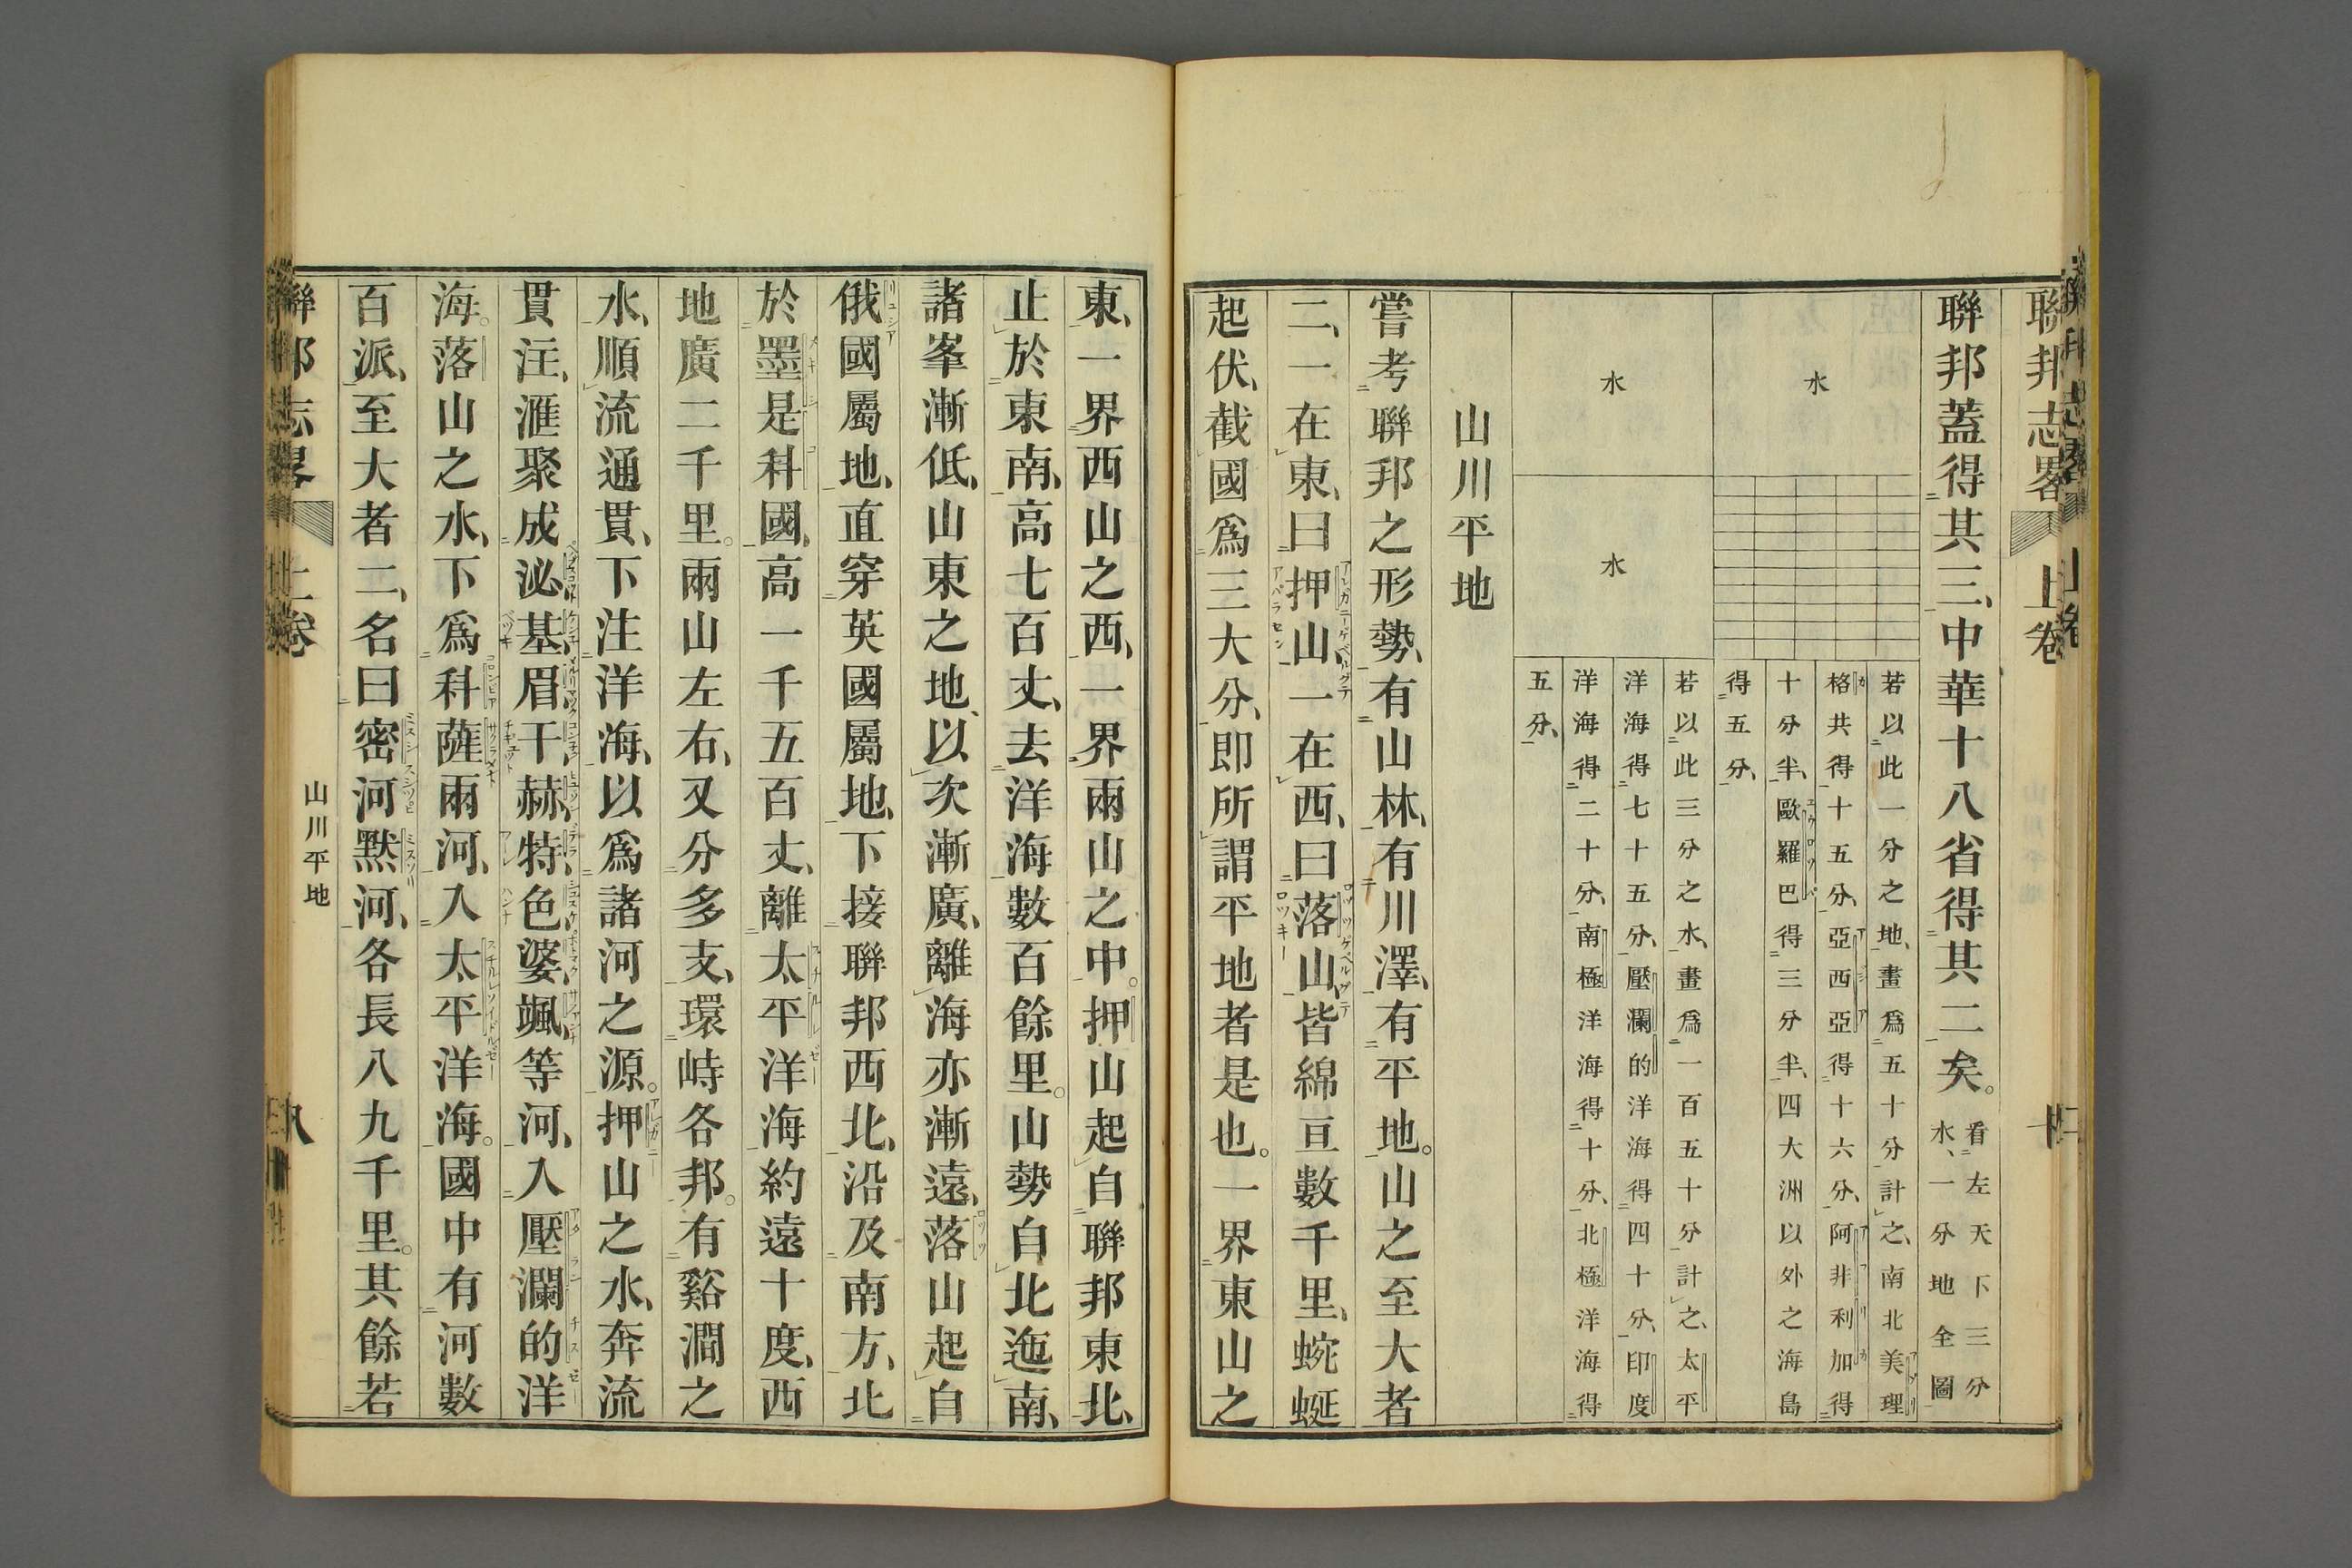 聯邦志畧 上卷
聯邦蓋得其三、中華十八省得其二矣。看左天下三分
水、一分地全圖
水
水
水
若以此一分之地、畫爲五十分計之、南北美理
格共得十五分、亞西亞得十六分、阿非利加得
十分半、歐羅巴得三分半、四大洲以外之海島
得五分、
若以此三分之水、畫爲一百五十分計之、太平
洋海得七十五分、壓瀾的洋海得四十分、印度
洋海得二十分、南極洋海得十分、北極洋海得
五分、
山川平地
嘗考聯邦之形勢、有山林、有川澤、有平地。山之至大者
二、一在東、曰押山、一在西、曰落山、皆綿亘數千里、蜿蜒
起伏、截國爲三大分、即所謂平地者是也。一界東山之
東、一界西山之西、一界兩山之中。押山起自聯邦東北、
止於東南、高七百丈、去洋海數百餘里。山勢自北迤南、
諸峯漸低、山東之地、以次漸廣、離海亦漸遠、落山起自
俄國屬地、直穿英國屬地、下接聯邦西北、沿及南方、北
於墨是科國、高一千五百丈、離太平洋海約遠十度、西
地廣二千里。兩山左右、又分多支、環峙各邦。有谿澗之
水、順流通貫、下注洋海、以爲諸河之源。押山之水、奔流
貫注、滙聚成泌基眉干赫特色婆颯等河、入壓瀾的洋
海。落山之水、下爲科薩兩河、入太平洋海。國中有河數
百派、至大者二、名曰密河默河、各長八九千里。其餘若
聯邦志畧 上卷 山川平地 八